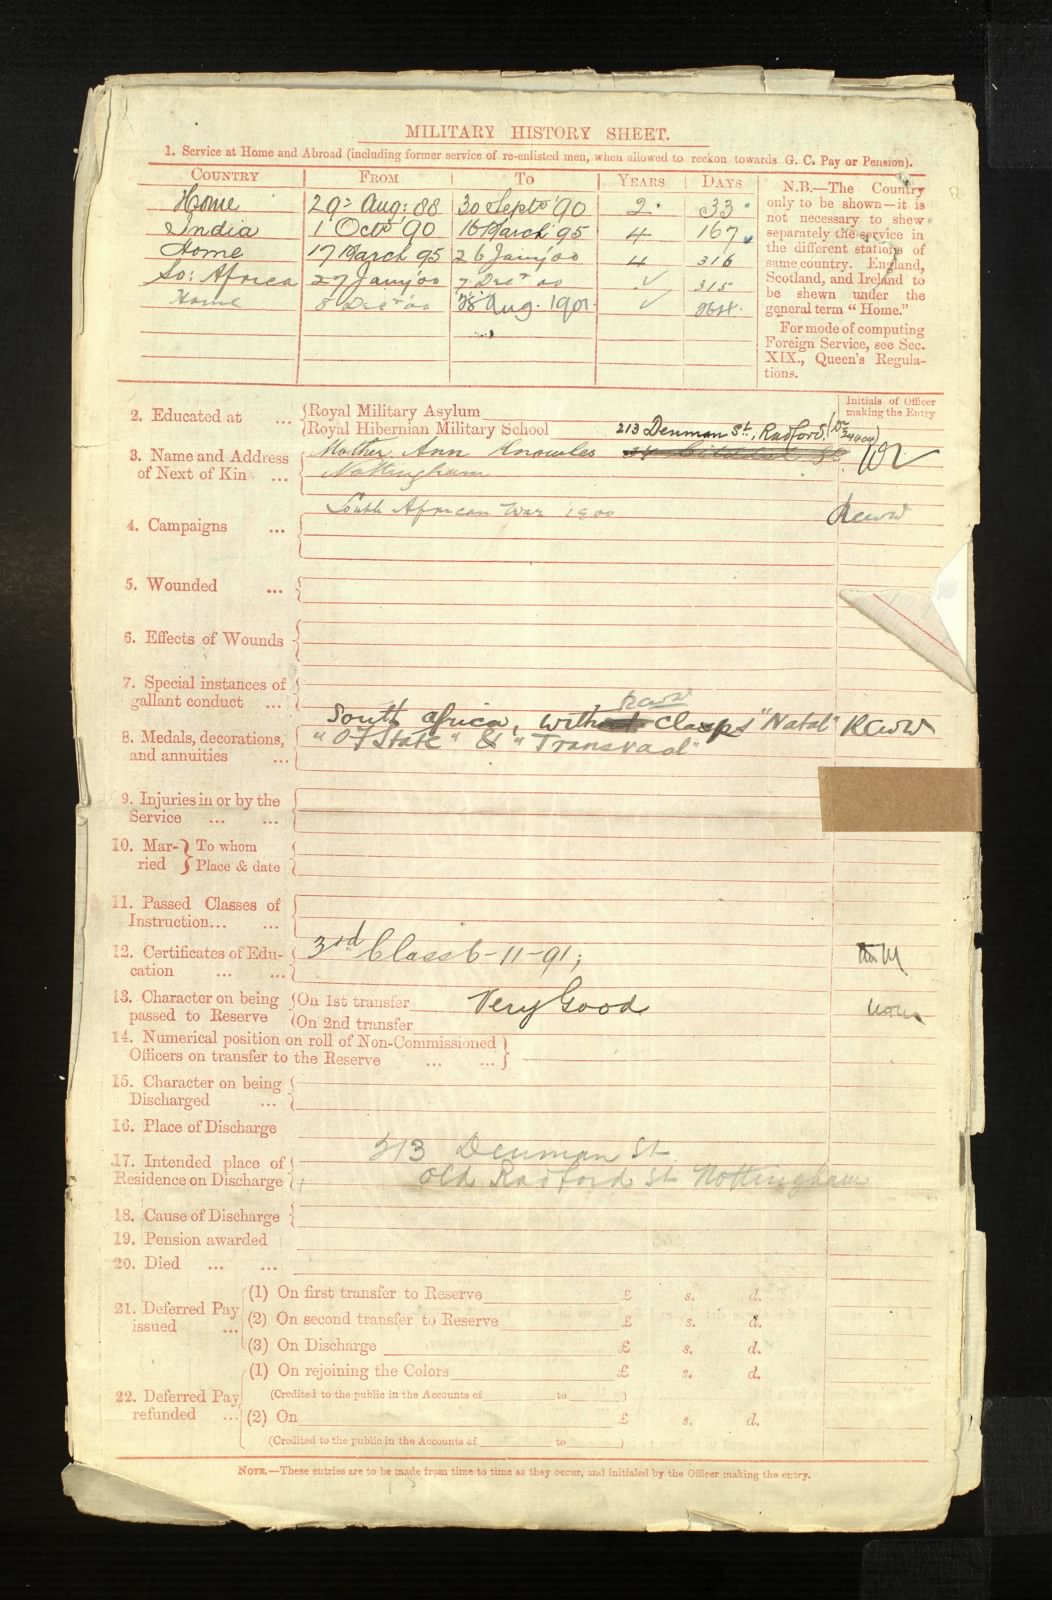 MILITARY HISTORY SHEET.
1. Service at Home and Abroad (including former service of re-enlisted men, when allowed to reckon towards G. C. Pay or Pension).
COUNTRY FROM TO YEARS DAYS
Home 29th Aug; 88 30 Septr '90 2 33
India 1 Octr '90 16 March '95 4 167
Home 17 March 95 26 Jany '00 4 316
So: Africa 27 Jany '00 7 Decr 00 315
Home 8 Decr '00 28 Aug. 1901 264
N.B.—The Country
only to be shown—it is
not necessary to shew
separately the service in
the different stations of
same country. England,
Scotland, and Ireland to
be shewn under the
general term "Home."
For mode of computing
Foreign Service, see Sec.
XIX., Queen's Regula-
tions.
Initials of Officer
making the Entry
2. Educated at ... Royal Military Asylum
Royal Hibernian Military School
213 Denman St., Radford.
3. Name and Address
of Next of Kin ...
Mother Ann Knowles
Nottingham
4. Campaigns ...
South African War 1900 RCWW
5. Wounded ...
6. Effects of Wounds
7. Special instances of
gallant conduct ...
RCWW
8. Medals, decorations,
and annuities ...
South africa, with clasps "Natal" RCWW
"OFState" & "Transvaal"
9. Injuries in or by the
Service ... ...
10. Mar-
ried
To whom
Place & date
11. Passed Classes of
Instruction... ...
12. Certificates of Edu-
cation ... ...
3rd Class 6-11-91;
13. Character on being
passed to Reserve
On 1st transfer Very Good
On 2nd transfer
14. Numerical position on roll of Non-Commissioned
Officers on transfer to the Reserve ... ...
15. Character on being
Discharged ...
16. Place of Discharge
17. Intended place of
Residence on Discharge
213 Denman St
Old Radford St Nottingham
18. Cause of Discharge
19. Pension awarded
20. Died ... ...
21. Deferred Pay
issued ...
(1) On first transfer to Reserve £ s. d.
(2) On second transfer to Reserve £ s. d.
(3) On Discharge £ s. d.
22. Deferred Pay
refunded ...
(1) On rejoining the Colors £ s. d.
(Credited to the public in the Accounts of to )
(2) On £ s. d.
(Credited to the public in the Accounts of to )
NOTE.—These entries are to be made from time to time as they occur, and initialed by the Officer making the entry.